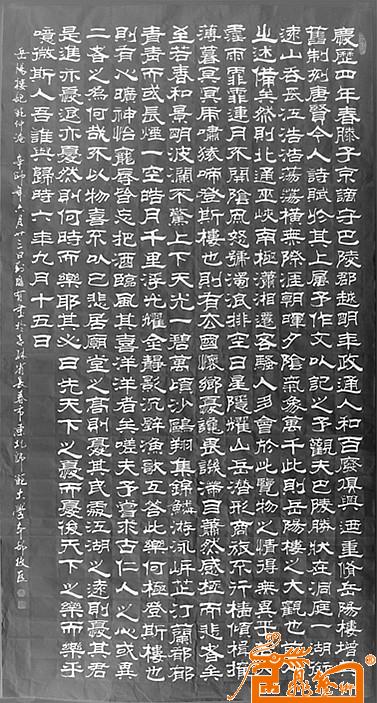 慶歷四年春滕子京謫守巴陵郡越明年政通人和百廢俱興廼重脩岳陽樓增其
舊制刻唐賢今人詩賦於其上屬予作文以記之予觀夫巴陵勝狀在洞庭一湖銜
遠山吞長江浩浩蕩蕩橫無際涯朝暉夕陰氣象萬千此則岳陽樓之大觀也前人
之述備矣然則北通巫峽南極瀟湘遷客騷人多會於此覽物之情得無異乎若夫
霪雨霏霏連月不開陰風怒號濁浪排空日星隱耀山岳潛形商旅不行檣傾楫摧
薄暮冥冥虎嘯猿啼登斯樓也則有去國懷鄉憂讒畏譏滿目蕭然感極而悲者矣
至若春和景明波瀾不驚上下天光一碧萬頃沙鷗翔集錦鱗游泳岸芷汀蘭郁郁
青青而或長煙一空皓月千里浮光耀金靜影沉璧漁歌互答此樂何極登斯樓也
則有心曠神怡寵辱皆忘把酒臨風其喜洋洋者矣嗟夫予嘗求古仁人之心或異
二者之為何哉不以物喜不以己悲居廟堂之高則憂其民處江湖之遠則憂其君
是進亦憂退亦憂然則何時而樂耶其必曰先天下之憂而憂後天下之樂而樂乎
噫微斯人吾誰與歸時六年九月十五日
岳陽樓記 范仲淹 年六月廿三日 書於吉林省長春市東北師範大學